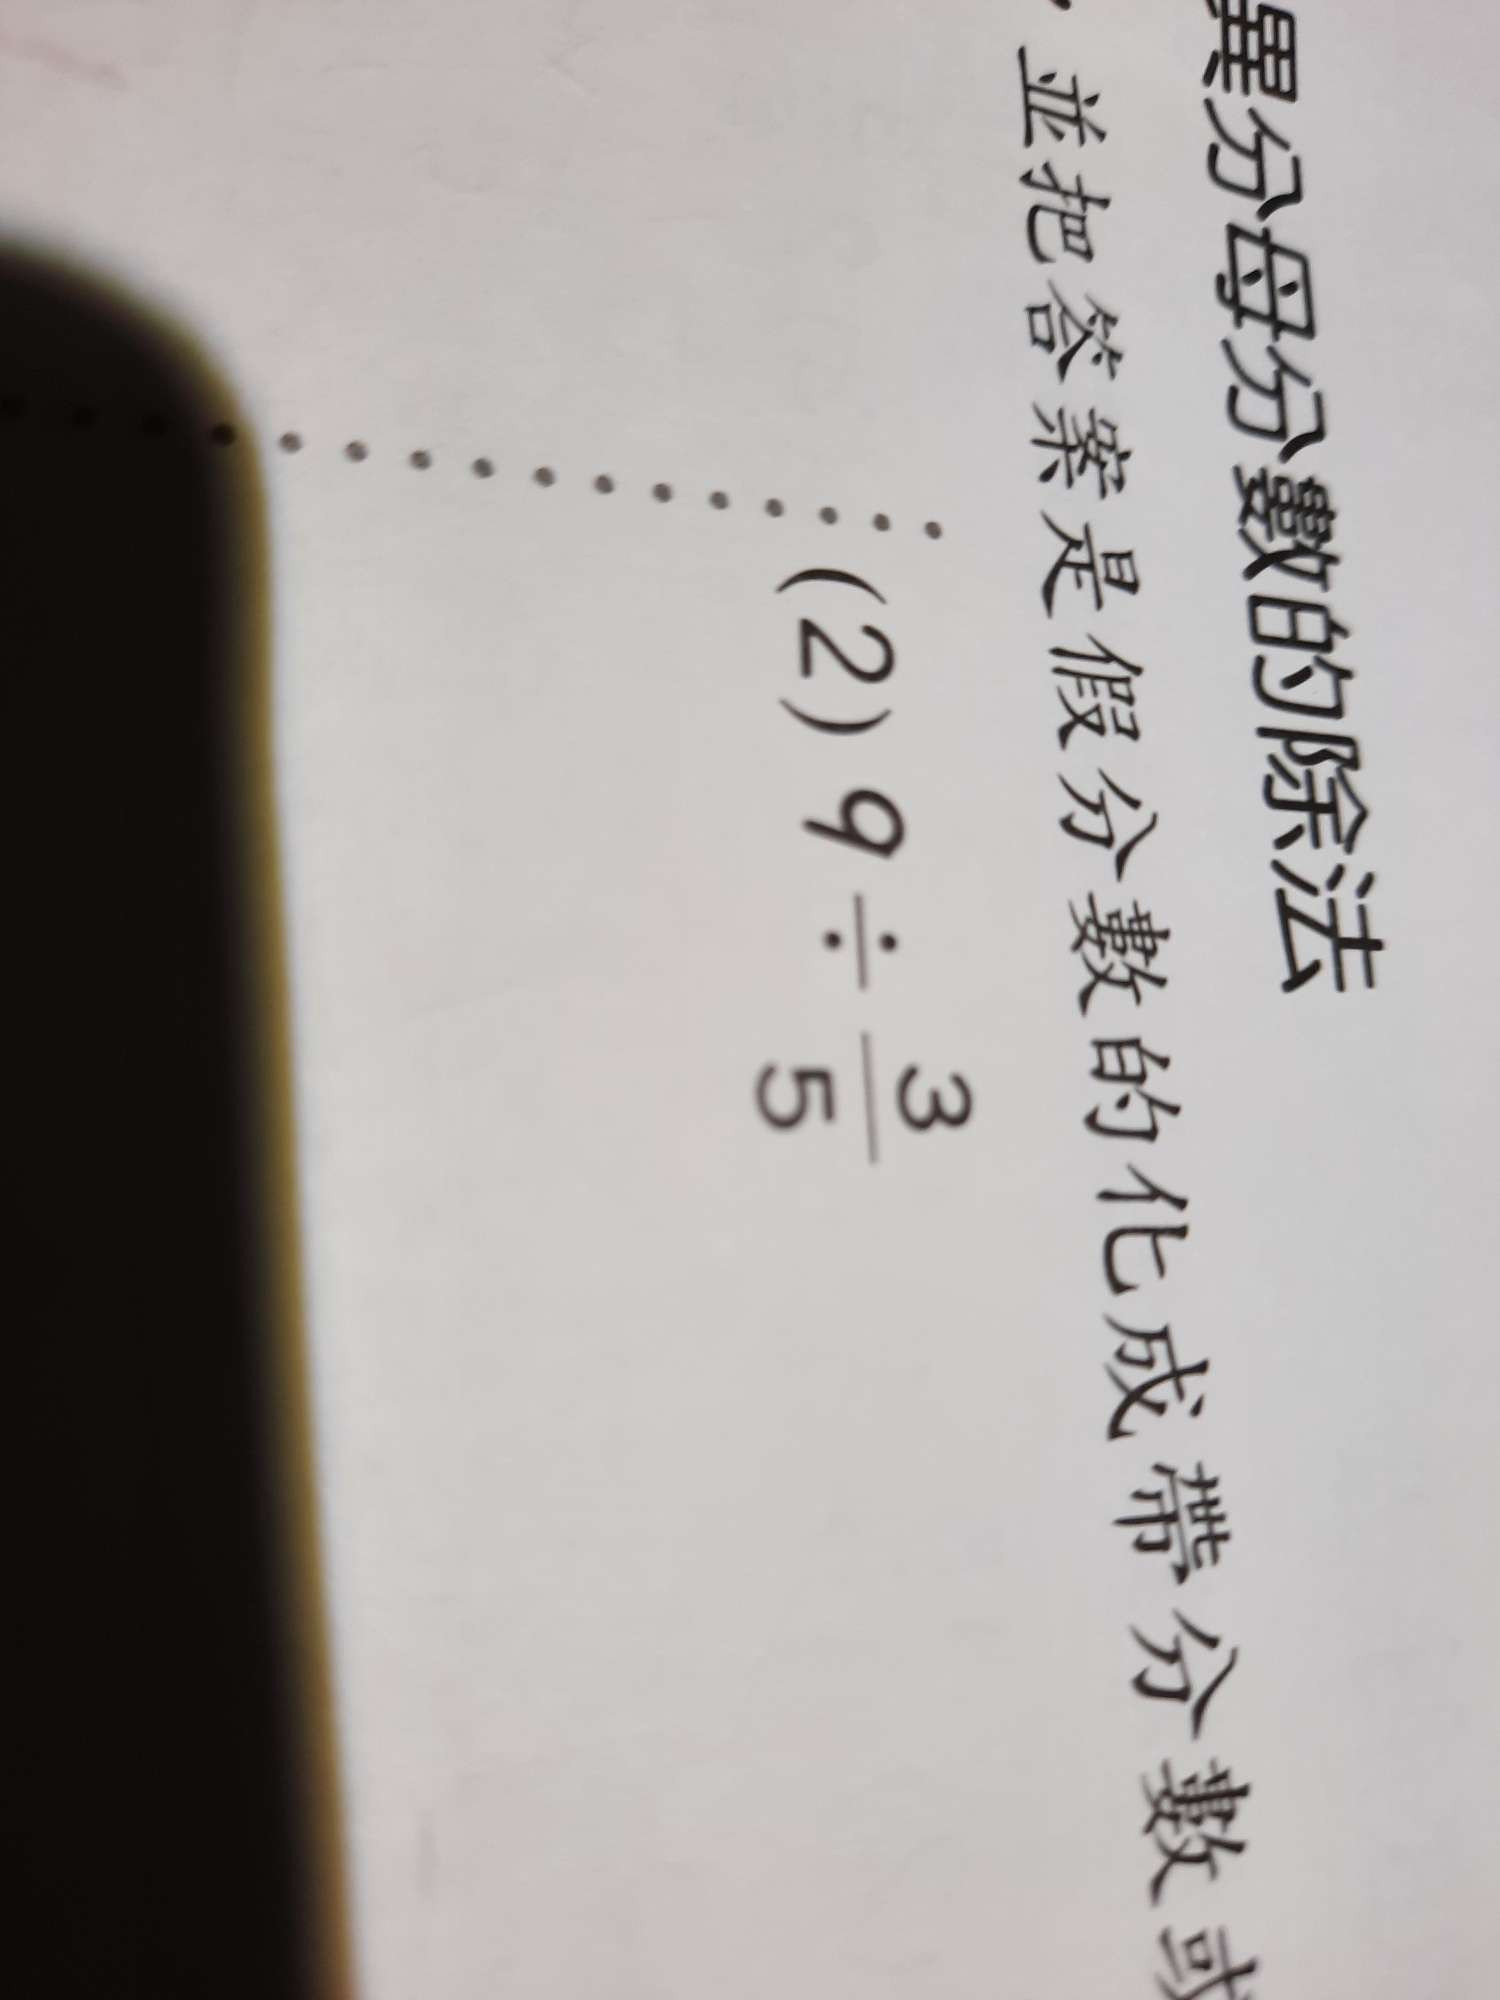 異分母分數的除法
，並把答案是假分數的化成帶分數或
(2) 9 ÷ 3/5